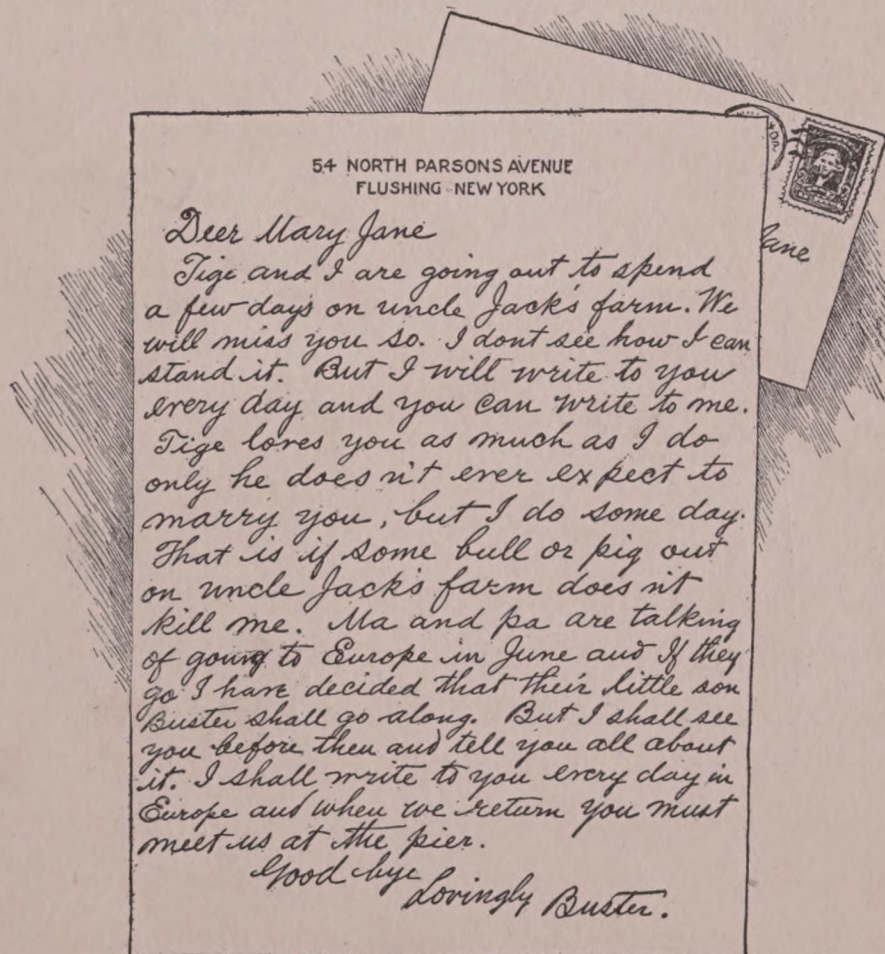 54 NORTH PARSONS AVENUE
FLUSHING NEW YORK
Jane
Deer Mary Jane
Tige and I are going out to spend
a few days on uncle Jack's farm. We
will miss you so. I dont see how I can
stand it. But I will write to you
every day and you can write to me.
Tige loves you as much as I do
only he does n't ever expect to
marry you, but I do some day.
That is if some bull or pig out
on uncle Jack's farm does n't
kill me. Ma and pa are talking
of going to Europe in June and If they
go I have decided that their little son
Buster shall go along. But I shall see
you before then and tell you all about
it. I shall write to you every day in
Europe and when we return you must
meet us at the pier.
Good bye
Lovingly Buster.